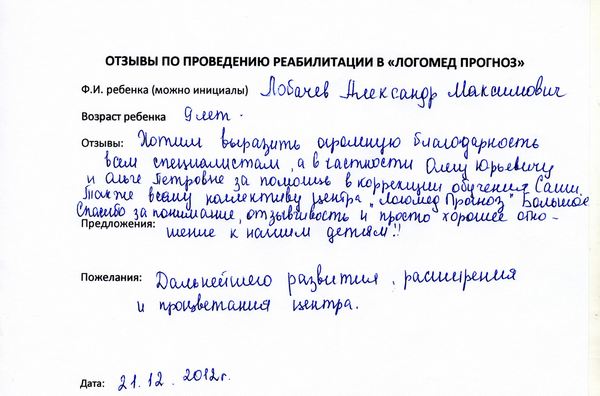 ОТЗЫВЫ ПО ПРОВЕДЕНИЮ РЕАБИЛИТАЦИИ В «ЛОГОМЕД ПРОГНОЗ»
Ф.И. ребенка (можно инициалы) Лобачев Александр Максимович
Возраст ребенка 9 лет.
Отзывы: Хотим выразить огромную благодарность
всем специалистам, а в частности Олегу Юрьевичу
и Ольге Петровне за помощь в коррекции обучения Саши.
Также всему коллективу центра „Логомед Прогноз" Большое
Спасибо за понимание, отзывчивость и просто хорошее отно-
Предложения: шение к нашим детям!!
Пожелания: Дальнейшего развития, расширения
и процветания центра.
Дата: 21.12.2012г.